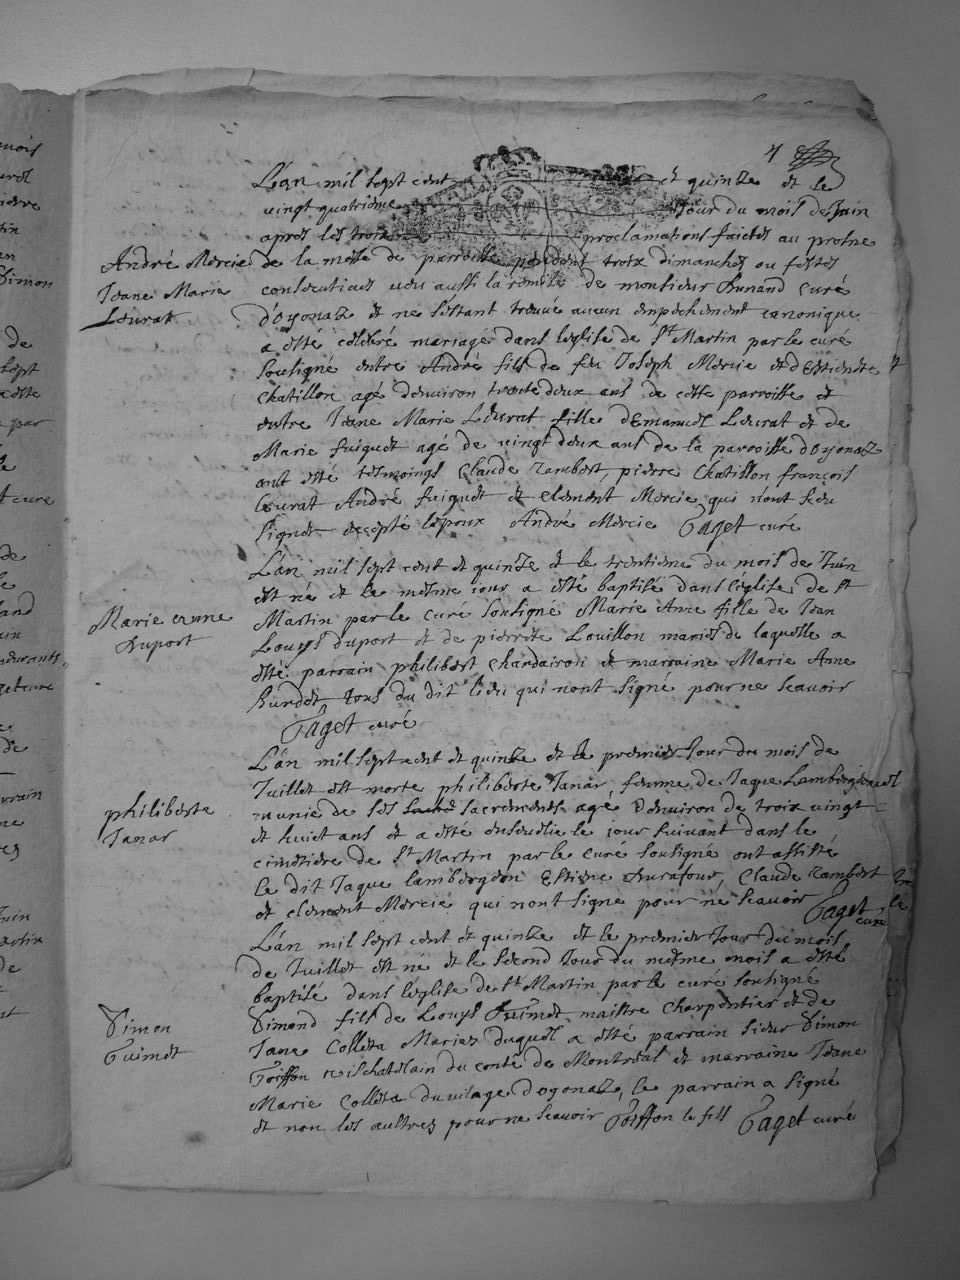 4
L'an mil sept cent et quinze et le
vingt quatrieme Jour du mois de Juin
apres les trois proclamations faictes au prosne
André Mercie
Jeane Marie
Levrat
de la messe de parroisse pendent trois dimanches ou festes
consecutives veu aussi la remise de monsieur Dunand curé
d'oyonaz et ne s'estant treuvé aucun empechement canonique
a esté celebré mariage dans leglise de St Martin par le curé
soussigné entre André fils de feu Joseph Mercie et d'Estiennette
chatillon agé denviron trente deux ans de cette parroisse et
entre Jeane Marie Levrat fille d'Emanuel Levrat et de
Marie fuiguet agé de vingt deux ans de la parroisse d'oyonaz
ont esté tesmoings Claude rambert, pierre chatillon françois
Levrat André fuiguet et Clement Mercie qui n'ont sceu
signer excepté lepoux André Mercie Taget curé
Marie anne
Duport
L'an mil sept cent et quinze et le trentieme du mois de Juin
est né et le mesme jour a esté baptisé dans l'eglise de St
Martin par le curé soussigné Marie Anne fille de Jean
Louys duport et de pierrette Louillon mariés de laquelle a
esté parrain philibert chardairon et marraine Marie Anne
Burdet tous du dit lieu qui n'ont signé pour ne scavoir
Taget curé
philiberte
Janar
L'an mil sept cent et quinze et le premier Jour du mois de
Juillet est morte philiberte Janar, femme de Jaque Lambergeon
munie de ses sacrements agé d'environ de troix vingt
et huict ans et a esté ensevelie le jour suivant dans le
cimetiere de St Martin par le curé soussigné ont assisté
le dit Jaque lambergeon Estiene Durafour, Claude rambert
et clement Mercie qui n'ont signé pour ne scavoir Taget
curé
Simon
Guimet
L'an mil sept cent et quinze et le premier Jour du mois
de Juillet est né et le second Jour du mesme mois a esté
baptisé dans l'eglise de St Martin par le curé soussigné
Simond fils de Louys Guimet maistre charpentier et de
Jane Colleta Mariez duquel a esté parrain sieur Simon
Goiffon chatelain du conté de Montreal et marraine Jeane
Marie Colleta du vilage d'ogonaz, le parrain a signé
et non les aultres pour ne scavoir Goiffon le fils Taget curé